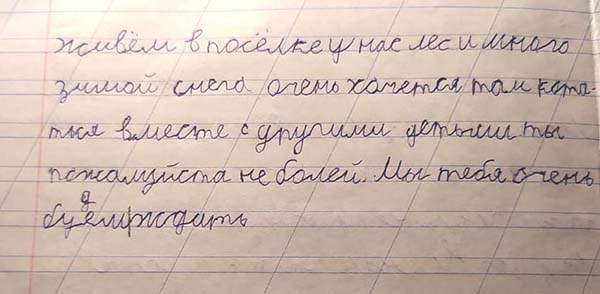 живём в посёлке у нас лес и много
зимой снега очень хочется там ката-
ться вместе с другими детьми ты
пожалуйста не болей. Мы тебя очень
будем ждать